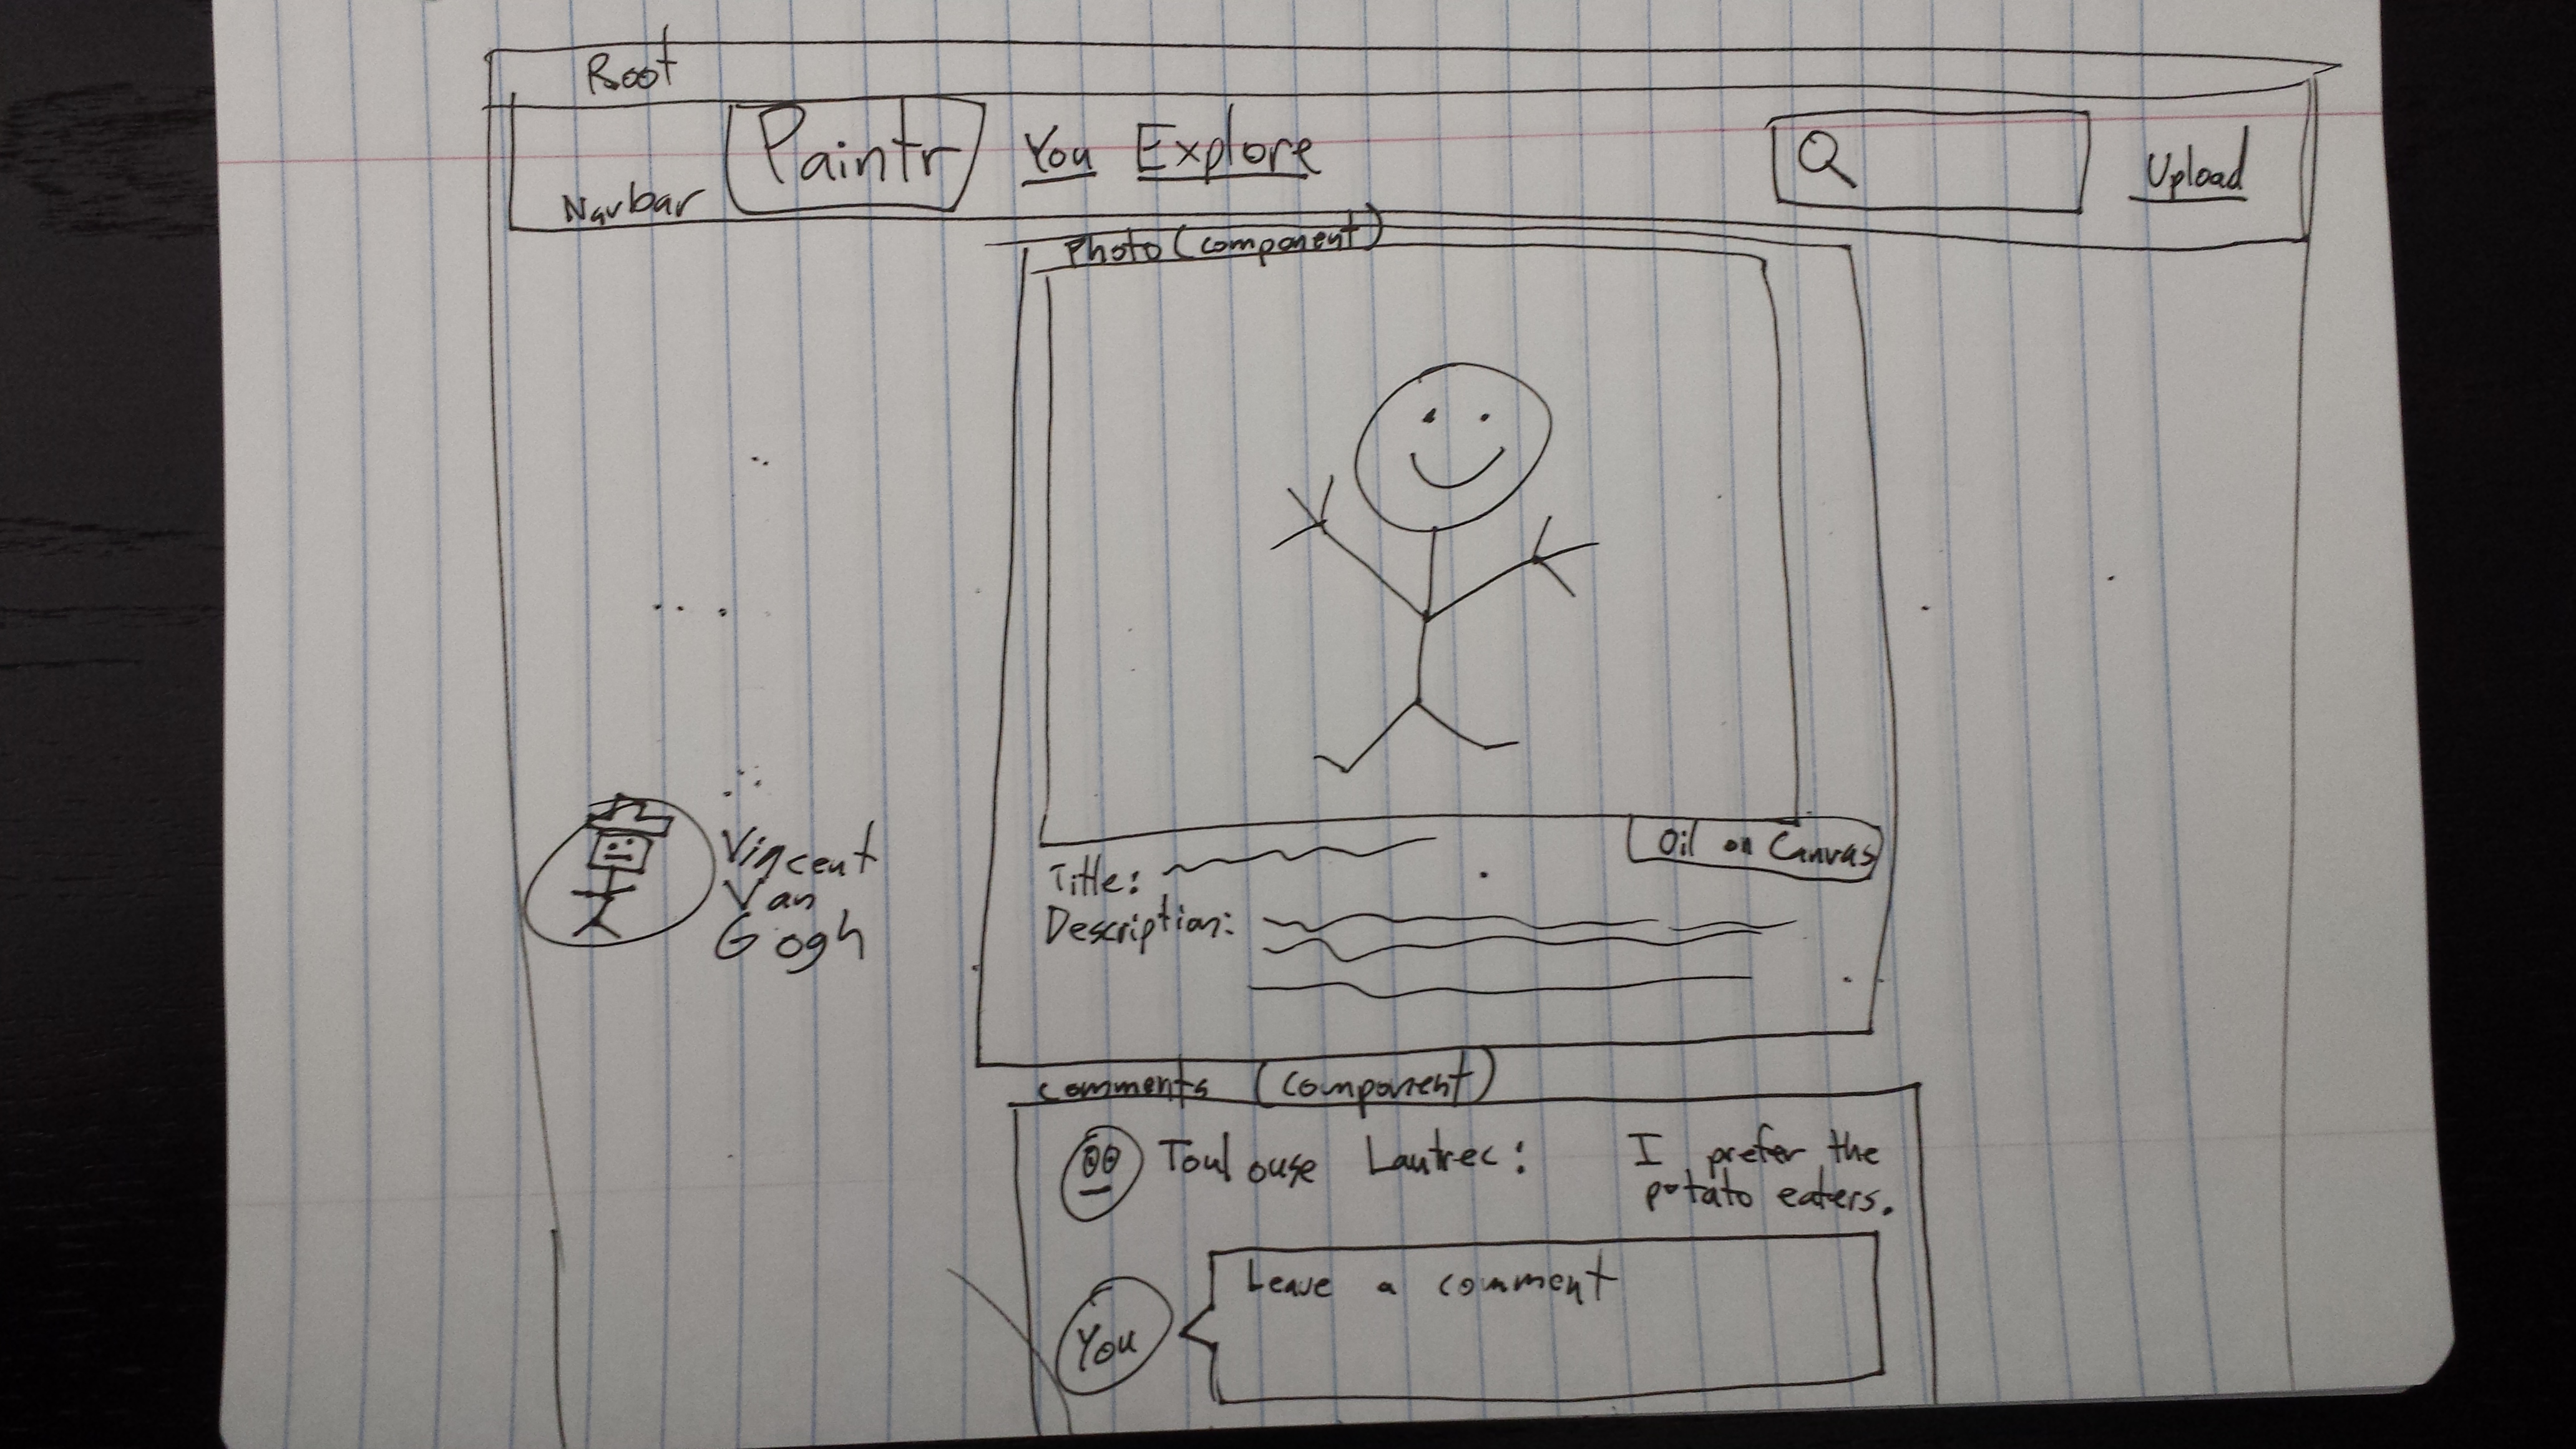 Root
Navbar
Paintr You Explore Q Upload
Photo (Component)
Vincent
Van
Gogh
Oil on Canvas
Title:
Description:
Comments (Component)
Toulouse Lautrec: I prefer the
potato eaters.
You
Leave a comment